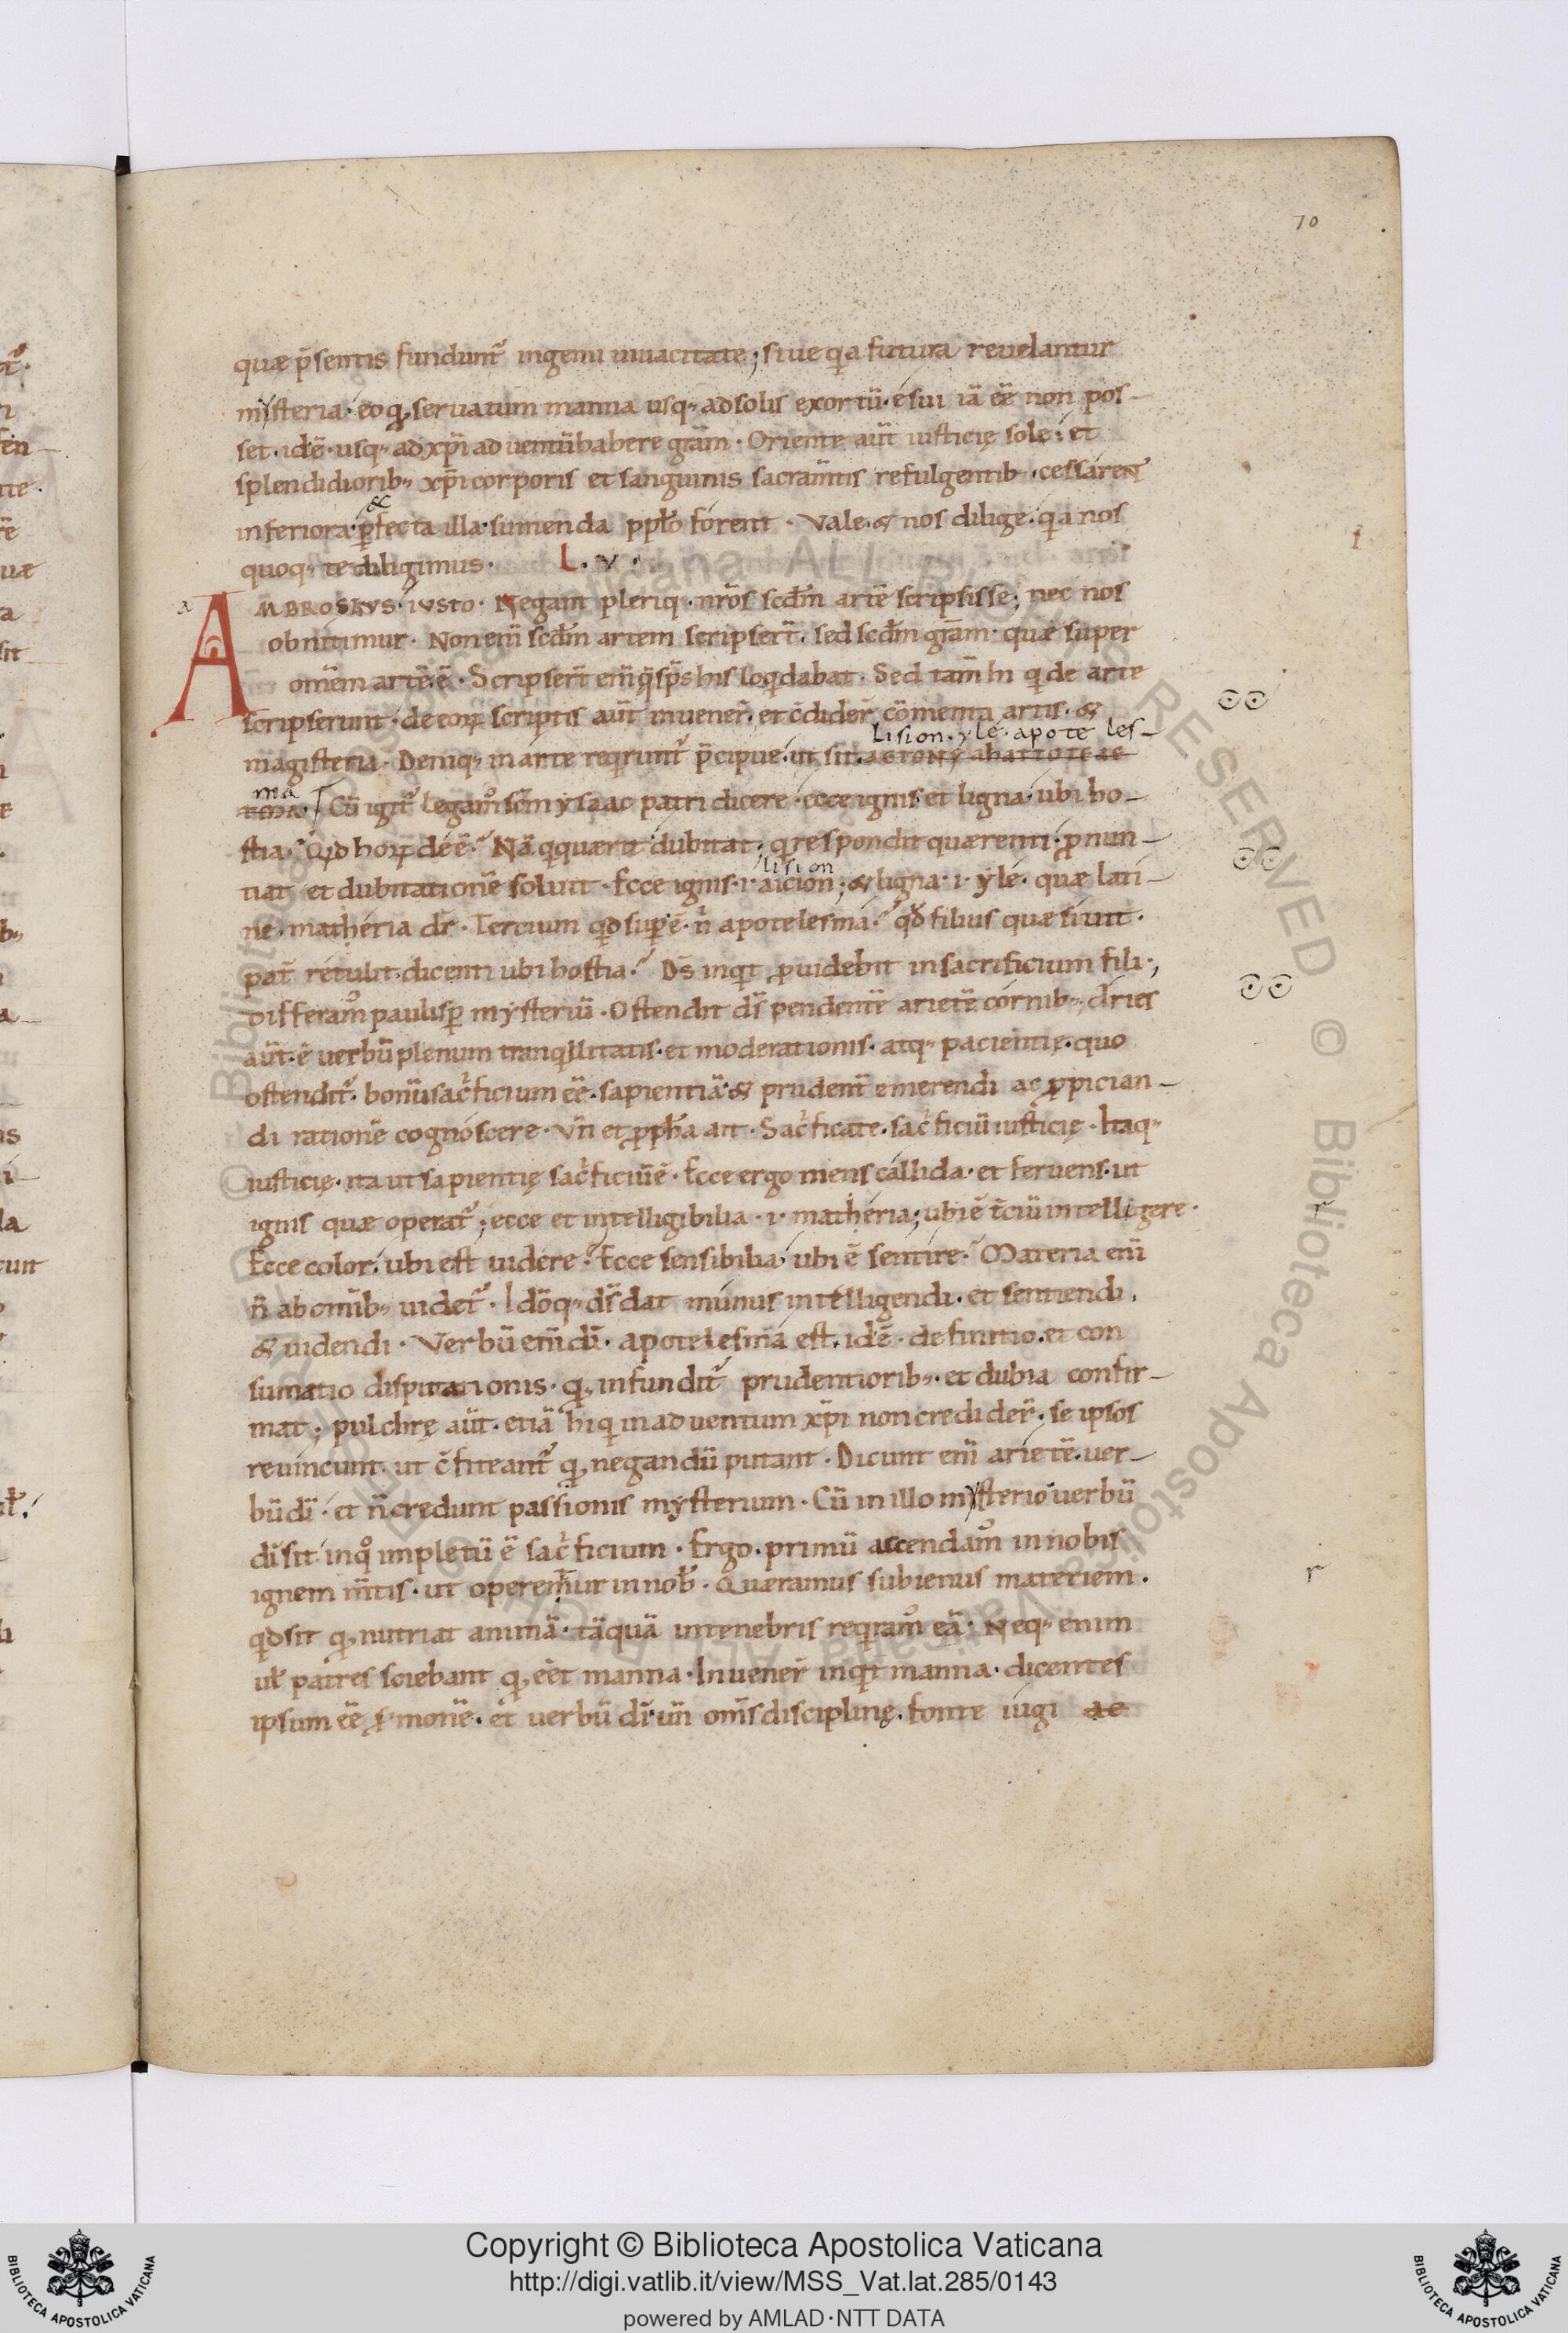 70
quæ p̄sentis fundunt᷒ ingenii uiuacitate; siue q̇a futura reuelantur
mysteria· eo qđ seruatum manna usq· ad solis exortū· esui iā eē non pos-
set· idē· usq· ad xp̄i aduentū habere gr̄am· Oriente aūt iusticię sole· et
splendidiorib· xp̄i corporis et sanguinis sacram̄tis refulgentib· cessarent᷒
&
inferiora· p̱fecta illa· sumenda pp̄lo forent· Vale· & nos dilige· q̇a nos
quoq· te diligimus· L·V·
a AMBROSIVS· IVSTO· Negant pleriq· nr̄os scd̄m artē scripsisse; nec nos
obnitimur· Non eni̅ scd̄m artem scripser̄t· sed scd̄m gr̄am· quæ super
om̄em artē ē· Scripser̄t eni̅ q̄ sp̄s his loq̇ dabat· Sed tam̄ hi q̇ de arte
scripserunt· de eoꝝ scriptis aūt inuener̄· et c̄dider̄ cōmenta artis· &
lision· yle· apoteles-
magisteria· Deniq· in arte req̇runt᷒ p̄cipue· ut sit·
ma
Cū igit᷒ legam᷒ sc̄m ysaac patri dicere· ecce ignis et ligna· ubi ho-
stia· Qd hoꝝ deē· Nā q̇ quærit dubitat· q̇ respondit quærenti· ꝓnun-
lision
tiat et dubitationē soluit· Ecce ignis· i· aicion; & ligna· i· yle· quæ lati-
ne· matheria dr̄· Tercium qd sup̱ ē· n̄ apotelesma· qd filius quæsiuit·
pat̄ retulit· dicenti ubi hostia· Ds̄ inq̇t ꝓuidebit in sacrificium fili·,
Differam᷒ paulisp̱ mysteriū· Ostendit ds̄ pendentē arietē cornib·; Aries
aūt· ē uerbū plenum tranq̇llitatis· et moderationis· atq· pacientię· quo
ostendit᷒· bonū sac̓ficium eē· sapientiā· & prudent̄ emerendi ac ꝓpician-
di rationē cognoscere· Vn̄ et ꝓph̄a ait· Sac̓ficate· sac̓ficiū iusticię· Itaq·
iusticię· ita ut sapientię sac̓ficiū ē· Ecce ergo mens callida· et feruens· ut
ignis quæ operat᷒; ecce et intelligibilia· i· matheria; ubi ē t̄ciū intelligere·
Ecce color· ubi est uidere· Ecce sensibilia· ubi ē sentire· Materia eni̅
n̄ ab omīb· uidet᷒· Idōq· ds̄ dat munus intelligendi· et sentiendi·
& uidendi· Verbū eni̅ di̅· apotelesma est· idē· definitio· et con
sumatio disputationis· qđ infundit᷒ prudentiorib·· et dubia confir-
mat; pulchrę aūt· etiā hi q̇ in aduentum xp̄i non credider̄· se ipsos
reuincunt· ut c̄fiteant᷒ qđ negandū putant· Dicunt eni̅ arietē· uer-
bū di̅· et n̄ credunt passionis mysterium· Cū in illo mysterio uerbū
di̅ sit· in q̊ impletū ē sac̓ficium· Ergo· primū accendam᷒ in nobis
ignem m̄tis· ut operemur in nob̄· Quæramus subienus materiem·
qd sit qđ nutriat animā· tāquā in tenebris req̇ram᷒ eā· Neq· enim
ul̄ patres sciebant qđ eēt manna· Inuener̄ inq̇t manna· dicentes
ipsum eē s̓monē· et uerbū di̅· un̄ om̄s disciplinę· fonte iugi ac
Copyright © Biblioteca Apostolica Vaticana
http://digi.vatlib.it/view/MSS_Vat.lat.285/0143
powered by AMLAD·NTT DATA
BIBLIOTECA APOSTOLICA VATICANA
BIBLIOTECA APOSTOLICA VATICANA